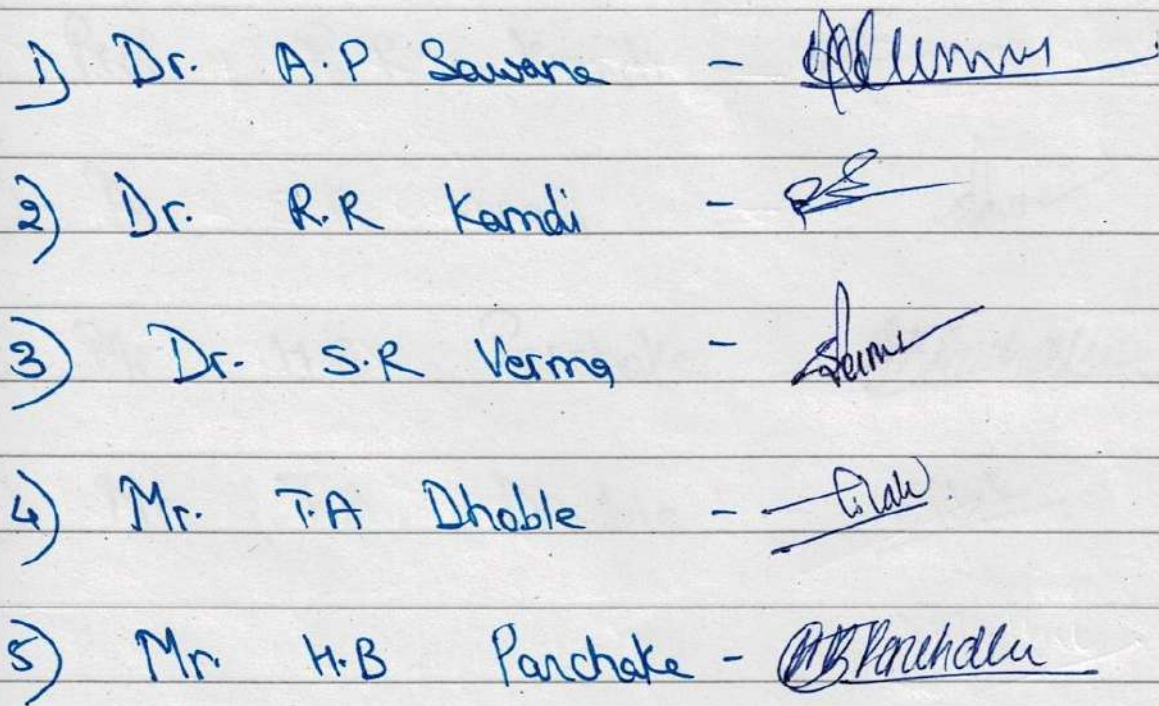 1) Dr. A.P Sawane -
2) Dr. R.R Kamdi -
3) Dr. S.R Verma -
4) Mr. T.A Dhoble -
5) Mr. H.B Panchake -